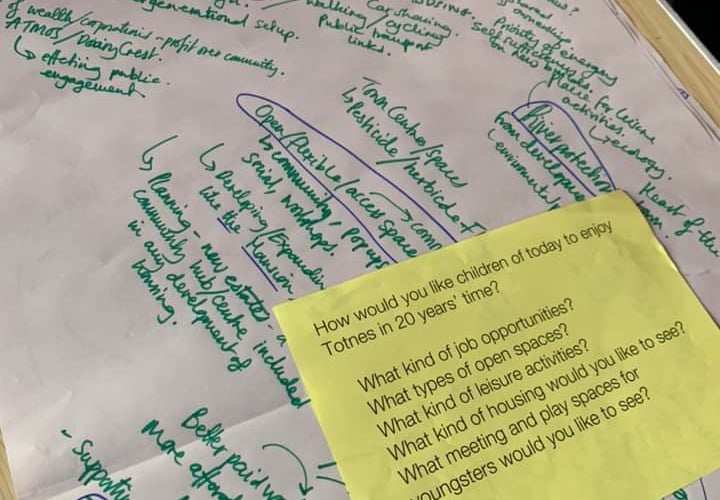 generational setup.
of wealth/corporations - profit over community.
ATMOS/
↳ effecting public
engagement
walking/cycling
Public transport
links.
Car sharing.
Priority of energy
self sufficiency
on new
place for leisure
activities.
↳ ecology.
River protection
from development
Heart of the
Town Centre/spaces
↳ Pesticide/herbicide
Open/flexible/access space
↳ community, popup
social, workshops.
↳ Developing/Expanding
like the Mansion
↳ Planning - new estates - a
community hub/centre included
in any development of
housing.
Better paid
More
- Supporting
How would you like children of today to enjoy
Totnes in 20 years' time?
What kind of job opportunities?
What types of open spaces?
What kind of leisure activities?
What kind of housing would you like to see?
What meeting and play spaces for
youngsters would you like to see?